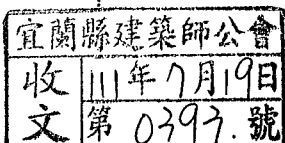 宜蘭縣建築師公會
收文
111年7月19日
第0393.號